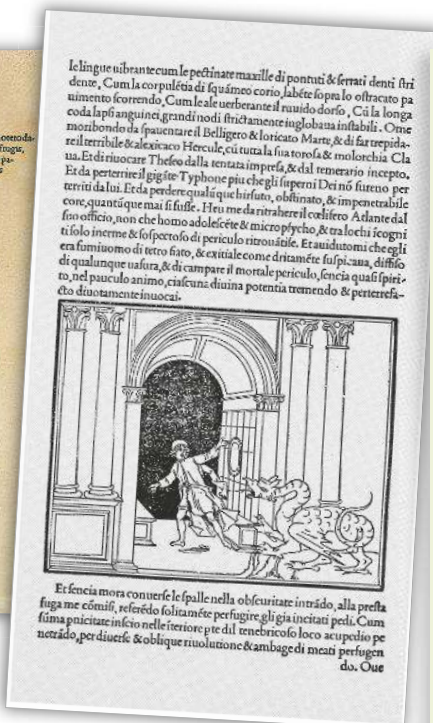 le lingue uibrante cum le pectinate maxille di pontuti & serrati denti stri
dente, Cum la corpulétia di squámeo corio, labéte sopra lo ostracato pa
uimento scorrendo, Cum le ale uerberante il ruuido dorso, Cú la longa
coda lapsi anguinei, grandi nodi strictamente inglobaua instabili. Ome
moribondo da spauentare il Belligero & loricato Marte, & di far trepida-
re il terribile & alexicaco Hercule, cú tutta la sua torosa & molorchia Cla
ua. Et di riuocare Theseo dalla tentata impresa, & dal temerario incepto,
Et da perterrire il gigáte Typhone piu che gli superni Dei nó fureno per
territi da lui. Et da perdere qualúque hirsuto, obstinato, & impenetrabile
core, quantúque mai si fusse. Heu me da ritrahere il cœlifero Atlante dal
suo officio, non che homo adolescéte & micropsycho, & tra lochi icogni
ti solo inerme & sospectoso di periculo ritrouátise. Et auidutomi che egli
era fumiuomo di tetro fiato, & exitiale come dritaméte suspicaua, diffiso
di qualunque uasura, & di campare il mortale periculo, sencia quasi spiri-
to, nel pauculo animo, ciascuna diuina potentia tremendo & perterrefa-
cto diuotamente inuocai.
Et sencia mora conuerse le spalle nella obscuritate intrádo, alla presta
fuga me cómisi, referédo solitaméte perfugire, gli gia incitati pedi. Cum
súma pnicitate inscio nelle iteriore pte dil tenebricoso loco acupedio pe
netrádo, per diuerse & oblique riuolutione & ambage di meati perfugen
do. Oue